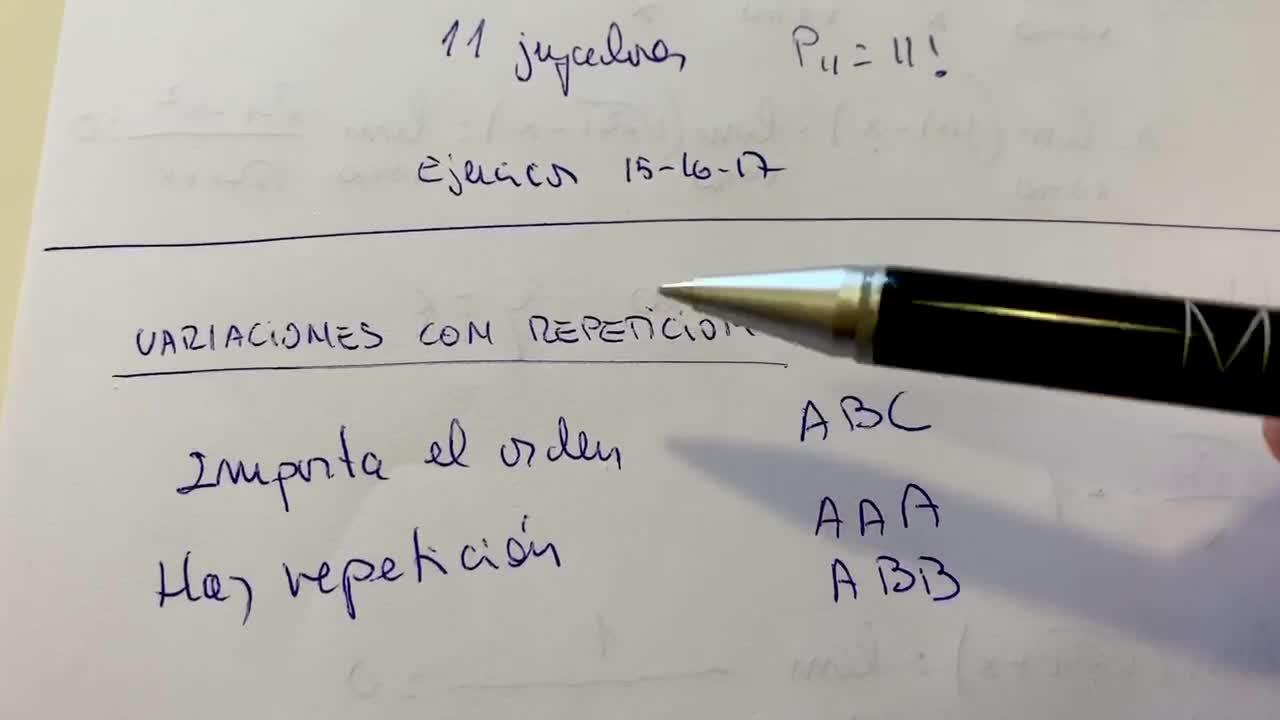 11 jugadores P₁₁ = 11!
Ejercicios 15-16-17
VARIACIONES CON REPETICION
Importa el orden ABC
Hay repetición AAA
ABB
M